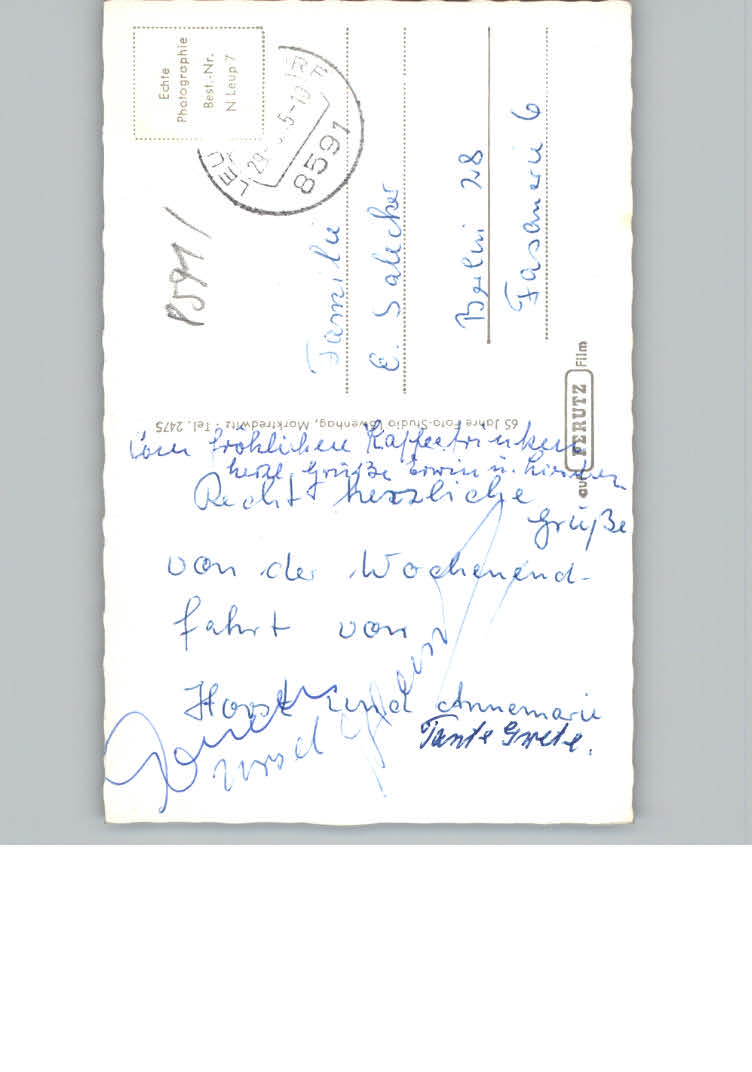 Echte
Photographie
Best.-Nr.
N Leup 7
29. 5-19
8591
Familie
E. Salecker
Berlin 28
Fasanerie 6
65 Jahre Foto-Studio Löwenhag, Marktredwitz · Tel. 2475
auf PERUTZ Film
Vom fröhlichen Kaffeetrinken
herzl. Grüße Erwin u.
Recht herzliche
Grüße
von der Wochenend-
fahrt von
Horst und Annemarie
Tante Grete.
und